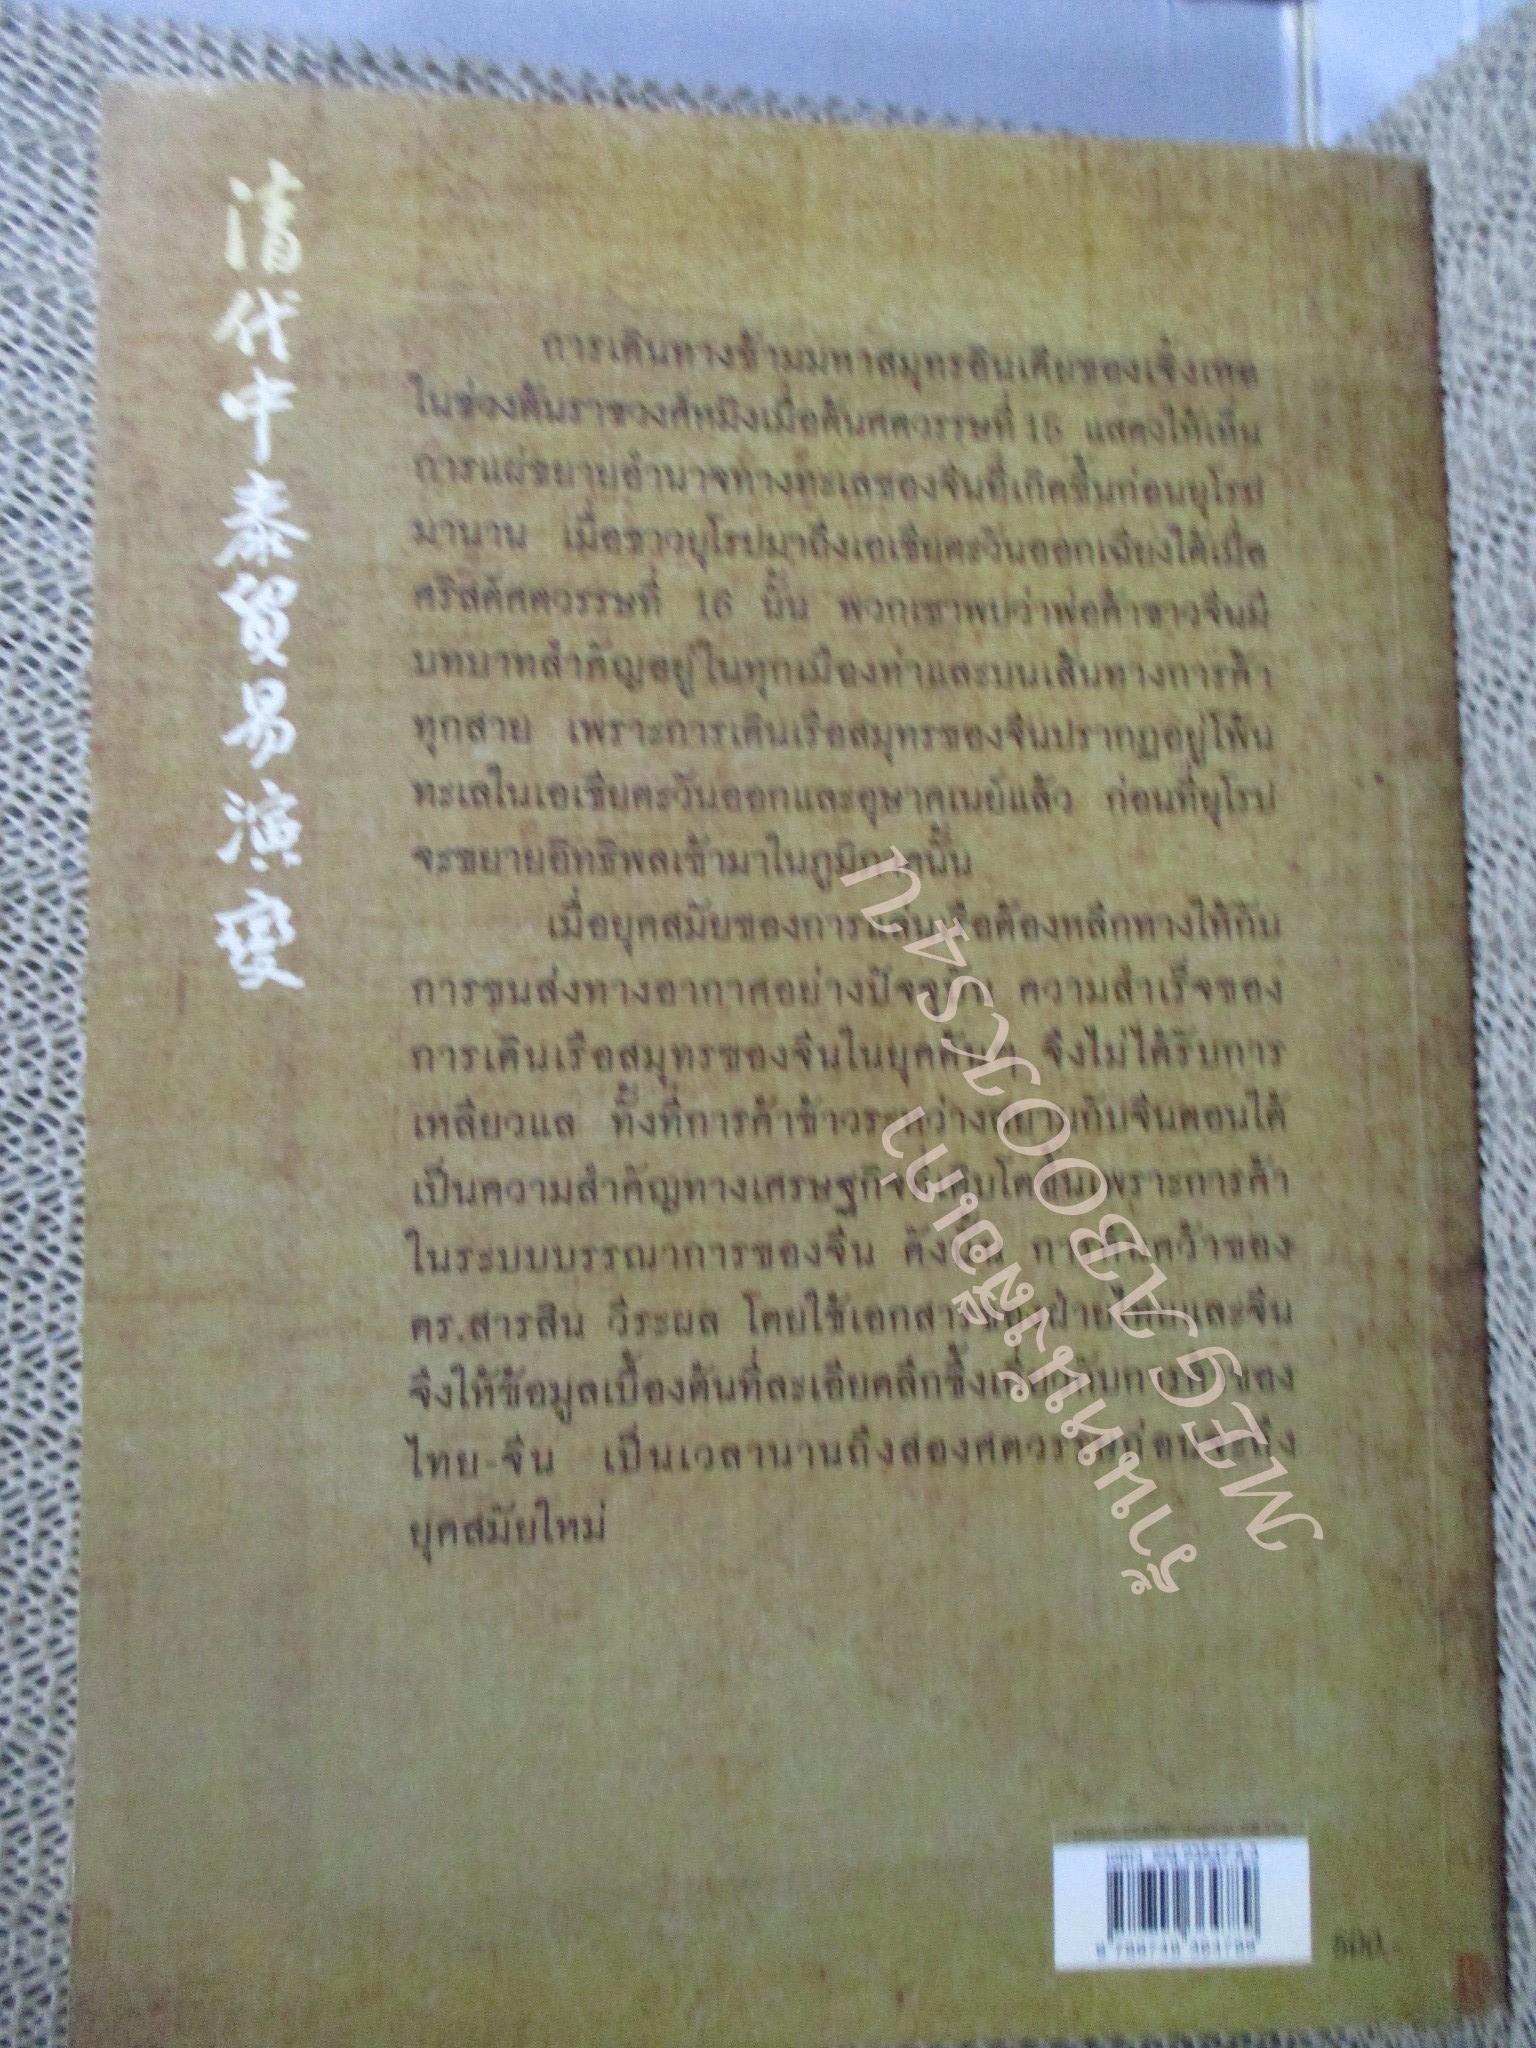 清代中泰貿易演變
การเดินทางข้ามมหาสมุทรอินเดียของเจิ้งเหอ
ในช่วงต้นราชวงศ์หมิงเมื่อต้นศตวรรษที่ 15 แสดงให้เห็น
การแผ่ขยายอำนาจทางทะเลของจีนที่เกิดขึ้นก่อนยุโรป
มานาน เมื่อชาวยุโรปมาถึงเอเชียตะวันออกเฉียงใต้เมื่อ
คริสต์ศตวรรษที่ 16 นั้น พวกเขาพบว่าพ่อค้าชาวจีนมี
บทบาทสำคัญอยู่ในทุกเมืองท่าและบนเส้นทางการค้า
ทุกสาย เพราะการเดินเรือสมุทรของจีนปรากฏอยู่โพ้น
ทะเลในเอเชียตะวันออกและอุษาคเนย์แล้ว ก่อนที่ยุโรป
จะขยายอิทธิพลเข้ามาในภูมิภาคนั้น
เมื่อยุคสมัยของการแล่นเรือต้องหลีกทางให้กับ
การขนส่งทางอากาศอย่างปัจจุบัน ความสำเร็จของ
การเดินเรือสมุทรของจีนในยุคต้นๆ จึงไม่ได้รับการ
เหลียวแล ทั้งที่การค้าข้าวระหว่างสยามกับจีนตอนใต้
เป็นความสำคัญทางเศรษฐกิจที่เติบโตขึ้นเพราะการค้า
ในระบบบรรณาการของจีน ดังนั้น การค้นคว้าของ
ดร.สารสิน วีระผล โดยใช้เอกสารของฝ่ายไทยและจีน
จึงให้ข้อมูลเบื้องต้นที่ละเอียดลึกซึ้งเกี่ยวกับการค้าของ
ไทย-จีน เป็นเวลานานถึงสองศตวรรษก่อนจะถึง
ยุคสมัยใหม่
ร้านหนังสือเก่า
MEGABOOKS4U
500.-